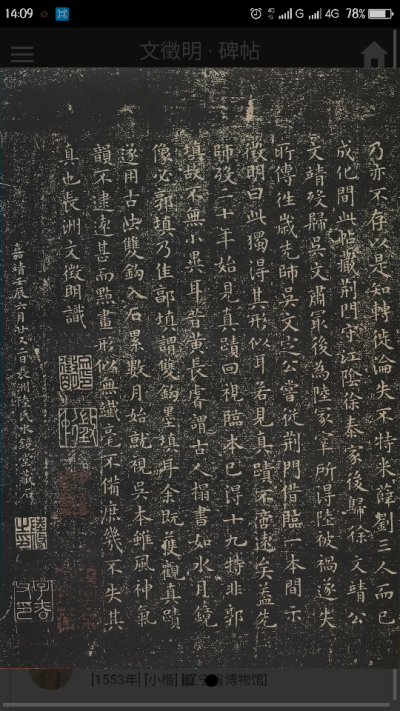 14:09
G
4G
78%
文徵明·碑帖
乃亦不存以是知轉徙淪失不特米薛劉三人而已
成化間此帖藏荆門守江陰徐泰家後歸徐文靖公
文靖歿歸吳文肅冣後為陸冢宰所得陸被禍遂失
所傳往歲先師吳文定公嘗從荆門借臨一本間示
徵明曰此獨得其形似耳若見真蹟不啻遠矣蓋先
師歿二十年始見真蹟回視臨本已得十九特非郭
填故不無小異耳昔黃長睿謂古人搨書如水月鏡
像必郭填乃佳郭填謂雙鈎墨填耳余既獲觀真蹟
遂用古法雙鈎入石累數月始就視吳本雖風神氣
韻不逮遠甚而點畫形似無纖毫不備庶幾不失其
真也長洲文徵明識
嘉靖壬辰六月廿日長洲陸氏水鏡堂藏石
[1553年] [小楷] [辽宁省博物馆]